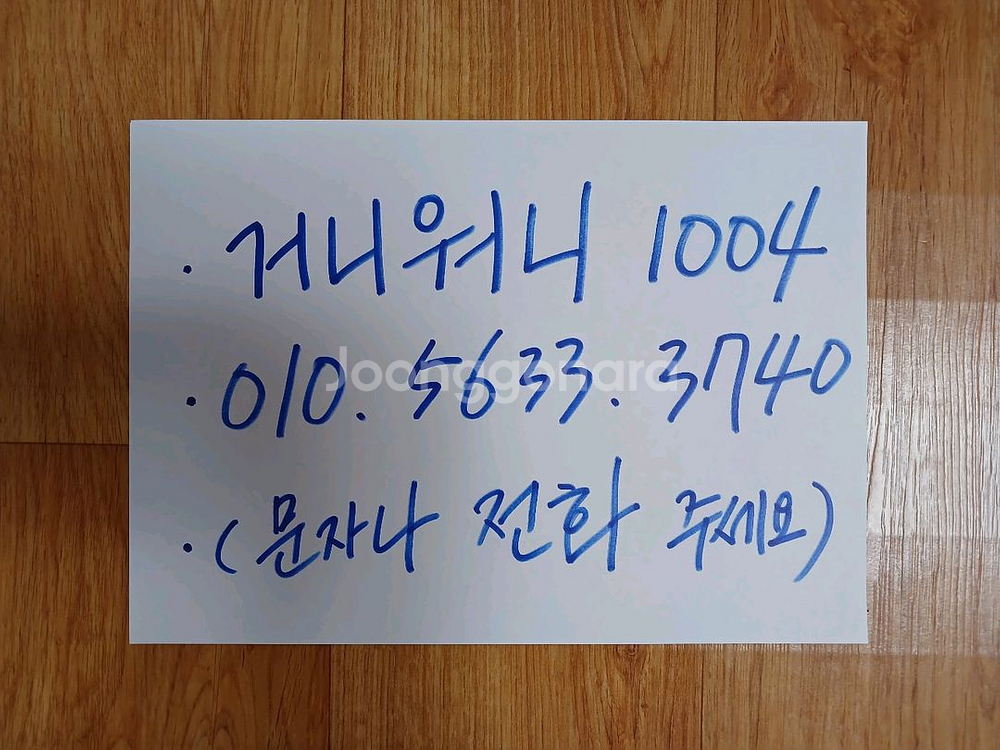 · 거니워니 1004
· 010. 5633. 3740
· (문자나 전화 주세요)
Joonggonara